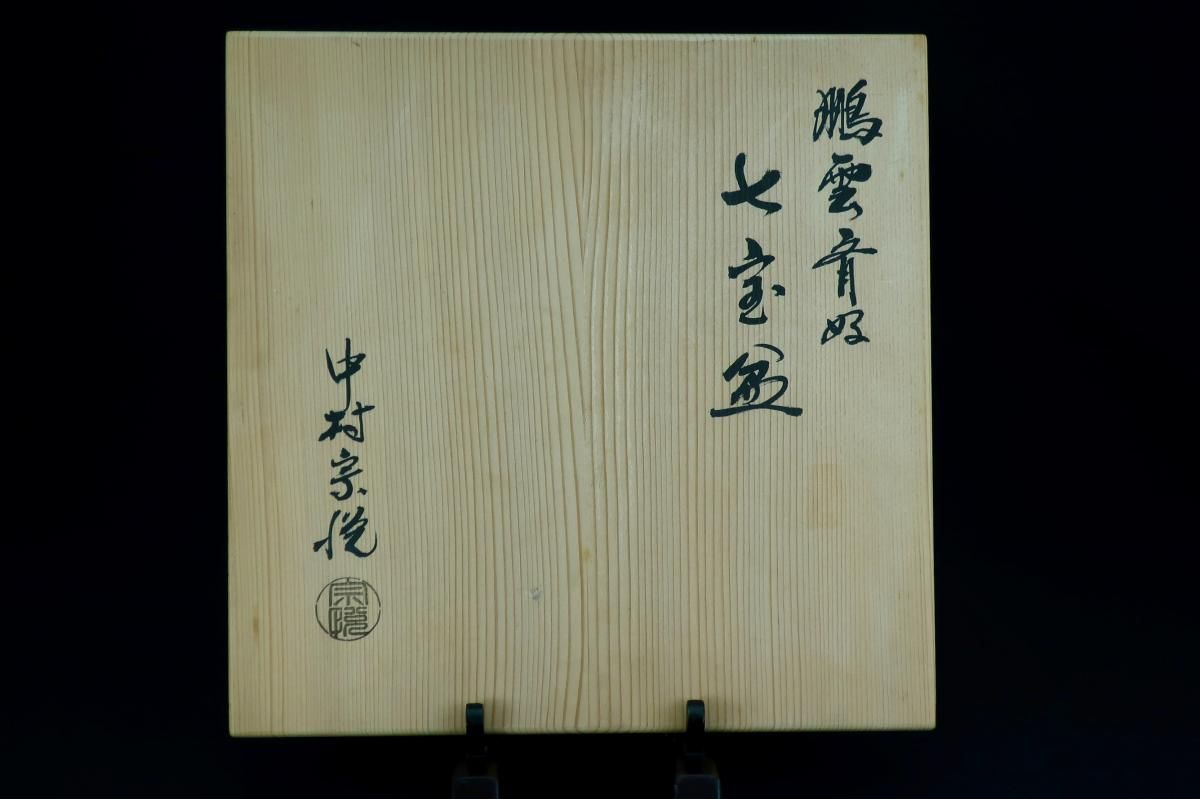 鵬雲斎好
七宝盆
中村宗悦
宗悦